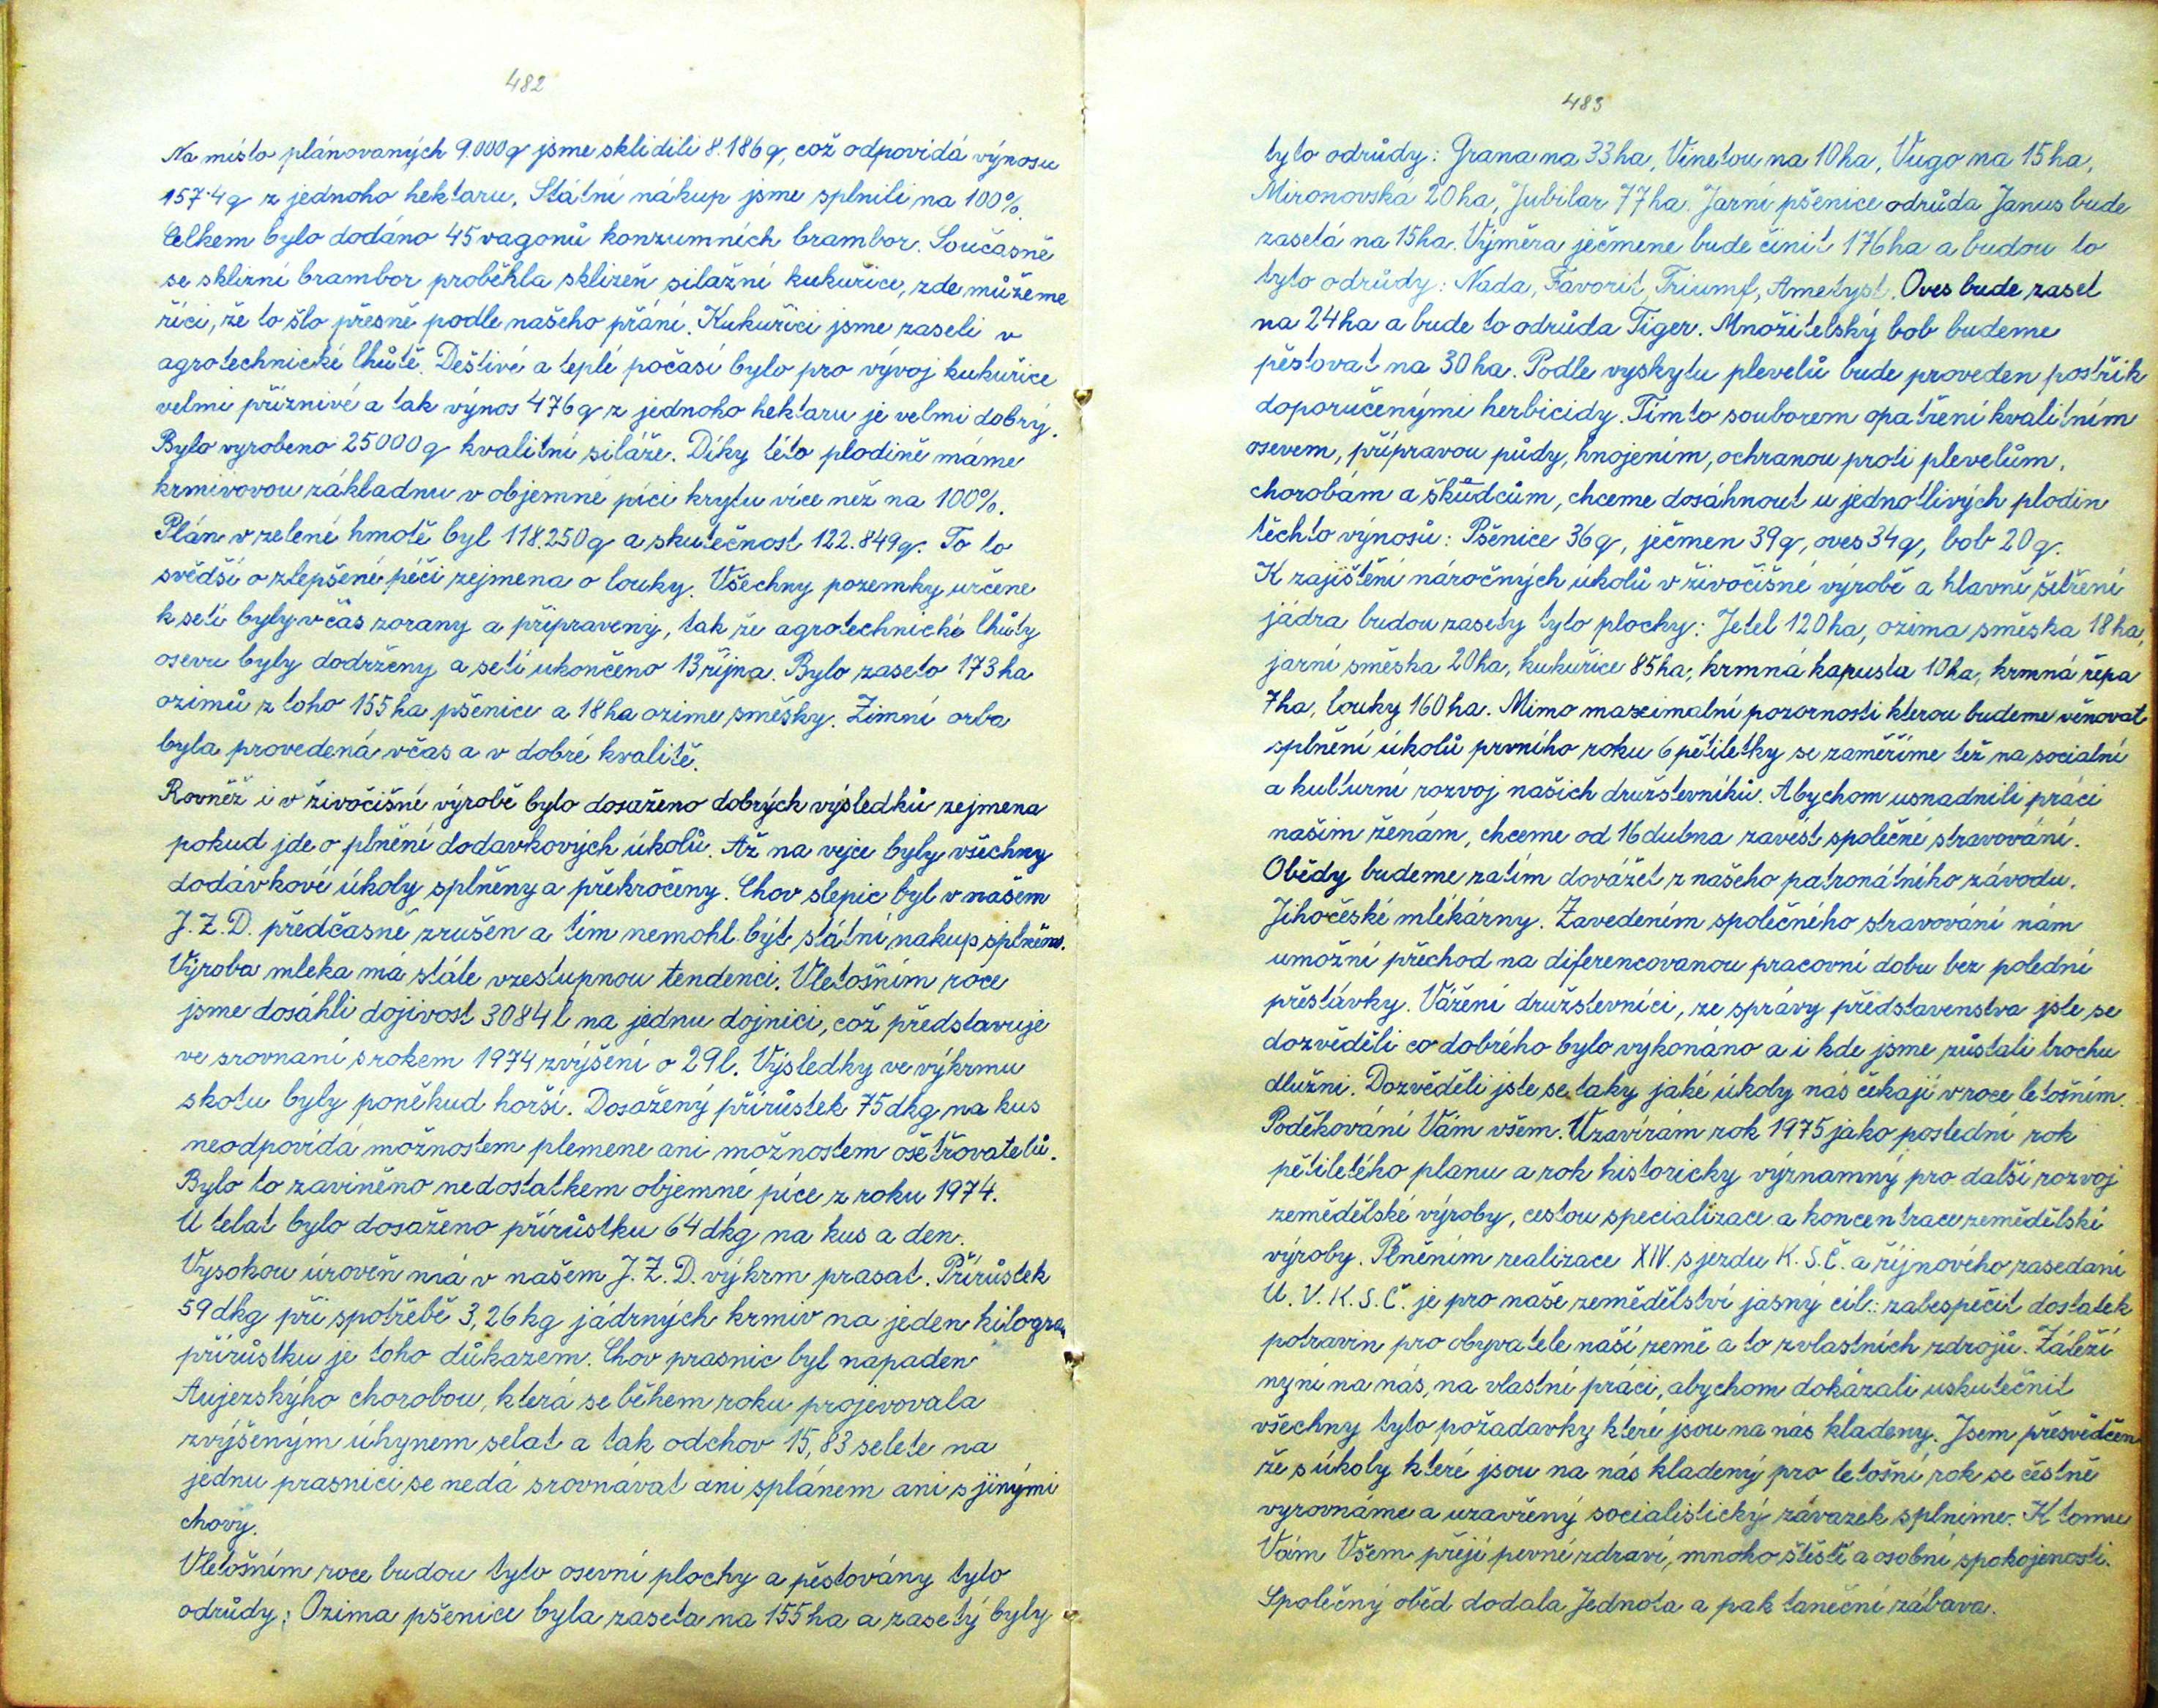 482
Na místo plánovaných 9.000q jsme sklidili 8.186q, což odpovídá výnosu
157·4q z jednoho hektaru. Státní nákup jsme splnili na 100%.
Celkem bylo dodáno 45 vagonů konzumních brambor. Současně
se sklizní brambor proběhla sklizeň silažní kukuřice, zde můžeme
říci, že to šlo přesně podle našeho přání. Kukuřici jsme zaseli v
agrotechnické lhůtě. Deštivé a teplé počasí bylo pro vývoj kukuřice
velmi příznivé a tak výnos 476q z jednoho hektaru je velmi dobrý.
Bylo vyrobeno 25000q kvalitní siláže. Díky této plodině máme
krmivovou základnu v objemné píci krytu více než na 100%.
Plán v zelené hmotě byl 118.250q a skutečnost 122.849q. To to
svědší o zlepšené péči zejmena o louky. Všechny pozemky určene
k setí byly včas zorany a připraveny, tak že agrotechnické lhůty
osevu byly dodrženy a setí ukončeno 13 října. Bylo zaseto 173 ha
ozimů z toho 155 ha pšenice a 18 ha ozime směsky. Zimní orba
byla provedená včas a v dobré kvalitě.
Rovněž i v živočišné výrobě bylo dosaženo dobrých výsledků zejmena
pokud jde o plnění dodavkových úkolů. Až na vejce byly všechny
dodávkové úkoly splněny a překročeny. Chov slepic byl v našem
J.Z.D. předčasně zrušen a tím nemohl být státní nakup splněn.
Výroba mleka má stále vzestupnou tendenci. Vletošním roce
jsme dosáhli dojivost 3084 l na jednu dojnici, což představuje
ve srovnaní s rokem 1974 zvýšení o 29 l. Výsledky ve výkrmu
skotu byly poněkud horší. Dosažený přírůstek 75 dkg na kus
neodpovídá možnostem plemene ani možnostem ošetřovatelů.
Bylo to zaviněno nedostatkem objemné píce z roku 1974.
U telat bylo dosaženo přírůstku 64 dkg na kus a den.
Vysokou úroveň má v našem J.Z.D. výkrm prasat. Přírůstek
59 dkg při spotřebě 3,26 kg jádrných krmiv na jeden kilogram
přírůstku je toho důkazem. Chov prasnic byl napaden
Aujezskýho chorobou, která se během roku projevovala
zvýšeným úhynem selat a tak odchov 15,83 selete na
jednu prasnici se nedá srovnávat ani splánem ani s jinými
chovy.
Vletošním roce budou tyto osevní plochy a pěstovány tyto
odrůdy: Ozima pšenice byla zaseta na 155 ha a zasetý byly
483
tyto odrůdy: Grana na 33 ha, Vinetou na 10 ha, Vugo na 15 ha,
Mironovská 20 ha, Jubilar 77 ha. Jarní pšenice odrůda Janus bude
zasetá na 15 ha. Výměra ječmene bude činit 176 ha a budou to
tyto odrůdy: Nada, Favorit, Triumf, Ametyst. Oves bude zaset
na 24 ha a bude to odrůda Tiger. Množitelský bob budeme
pěstovat na 30 ha. Podle vyskytu plevelů bude proveden postřik
doporučenými herbicidy. Tímto souborem opatření kvalitním
osevem, přípravou půdy, hnojením, ochranou proti plevelům,
chorobám a škůdcům, chceme dosáhnout u jednotlivých plodin
těchto výnosů: Pšenice 36 q, ječmen 39 q, oves 34 q, bob 20 q.
K zajištění náročných úkolů v živočišné výrobě a hlavně šetření
jádra budou zasety tyto plochy: Jetel 120 ha, ozima směska 18 ha,
jarní směska 20 ha, kukuřice 85 ha, krmná kapusta 10 ha, krmná řepa
7 ha, louky 160 ha. Mimo maximalní pozornosti kterou budeme věnovat
splnění úkolů prvního roku 6 pětiletky se zaměříme též na socialní
a kulturní rozvoj našich družstevníků. Abychom usnadnili práci
našim ženám, chceme od 16 dubna zavést společné stravování.
Obědy budeme zatím dovážet z našeho patronátního závodu.
Jihočeské mlékárny. Zavedením společného stravování nám
umožní přechod na diferencovanou pracovní dobu bez polední
přestávky. Vážení družstevníci, ze správy představenstva jste se
dozvěděli co dobrého bylo vykonáno a i kde jsme zůstali trochu
dlužni. Dozvěděli jste se taky jaké úkoly nás čekají v roce letošním.
Poděkování Vám všem. Uzavírám rok 1975 jako poslední rok
pětiletého planu a rok historicky významný pro další rozvoj
zemědělské výroby, cestou specializace a koncentrace zemědělské
výroby. Plněním realizace XIV. sjezdu K.S.Č. a říjnového zasedaní
Ú.V.K.S.Č. je pro naše zemědělství jasný cíl: zabespečit dostatek
potravin pro obyvatele naší země a to zvlastních zdrojů. Záleží
nyní na nás, na vlastní práci, abychom dokázali uskutečnit
všechny tyto požadavky které jsou na nás kladeny. Jsem přesvědčen
že s úkoly které jsou na nás kladený pro letošní rok se čestně
vyrovnáme a uzavřený socialistický závazek splníme. K tomu
Vám Všem přeji pevné zdraví, mnoho štěstí a osobní spokojenosti.
Společný oběd dodala Jednota a pak taneční zábava.